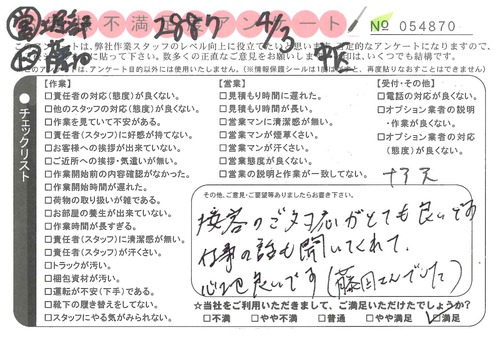 不満 アンケート
2887 4/3
No 054870
このアンケートは、弊社作業スタッフのレベル向上に役立てたいと思います。否定的なアンケートになりますので、
に貼って下さい。数多くの正直なご意見をお願いします。
このアンケートは、アンケート目的以外には使用いたしません。(※情報保護シールは1度はがすと、再度貼りなおすことはできません)
チェックリスト
【作業】
□責任者の対応(態度)が良くない。
□他のスタッフの対応(態度)が良くない。
□作業を見ていて不安がある。
□責任者(スタッフ)に好感が持てない。
□お客様への挨拶が出来ていない。
□ご近所への挨拶・気遣いが無い。
□作業開始前の内容確認がなかった。
□作業開始時間が遅れた。
□荷物の取り扱いが雑である。
□お部屋の養生が出来ていない。
□作業時間が長すぎる。
□責任者(スタッフ)に清潔感が無い。
□責任者(スタッフ)が汗くさい。
□トラックが汚い。
□梱包資材が汚い。
□運転が不安(下手)である。
□靴下の履き替えをしてない。
□スタッフにやる気がみられない。
【営業】
□見積もり時間に遅れた。
□見積もり時間が長い。
□営業マンに清潔感が無い。
□営業マンが煙草くさい。
□営業マンが汗くさい。
□営業態度が良くない。
□営業の説明と作業が一致してない。
【受付・その他】
□電話の対応が良くない。
□オプション業者の説明
・作業が良くない。
□オプション業者の対応
(態度)が良くない。
その他、ご意見・ご要望等ありましたらお書き下さい。
接客のご対応がとても良いです
仕事の話も聞いてくれて、
心地良いです(藤田さんでした)
☆当社をご利用いただきまして、ご満足いただけたでしょうか?
□不満 □やや不満 □普通 □やや満足 ☑満足